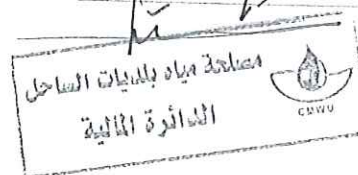 مصلحة مياه بلديات الساحل
الدائرة المالية
CMWU